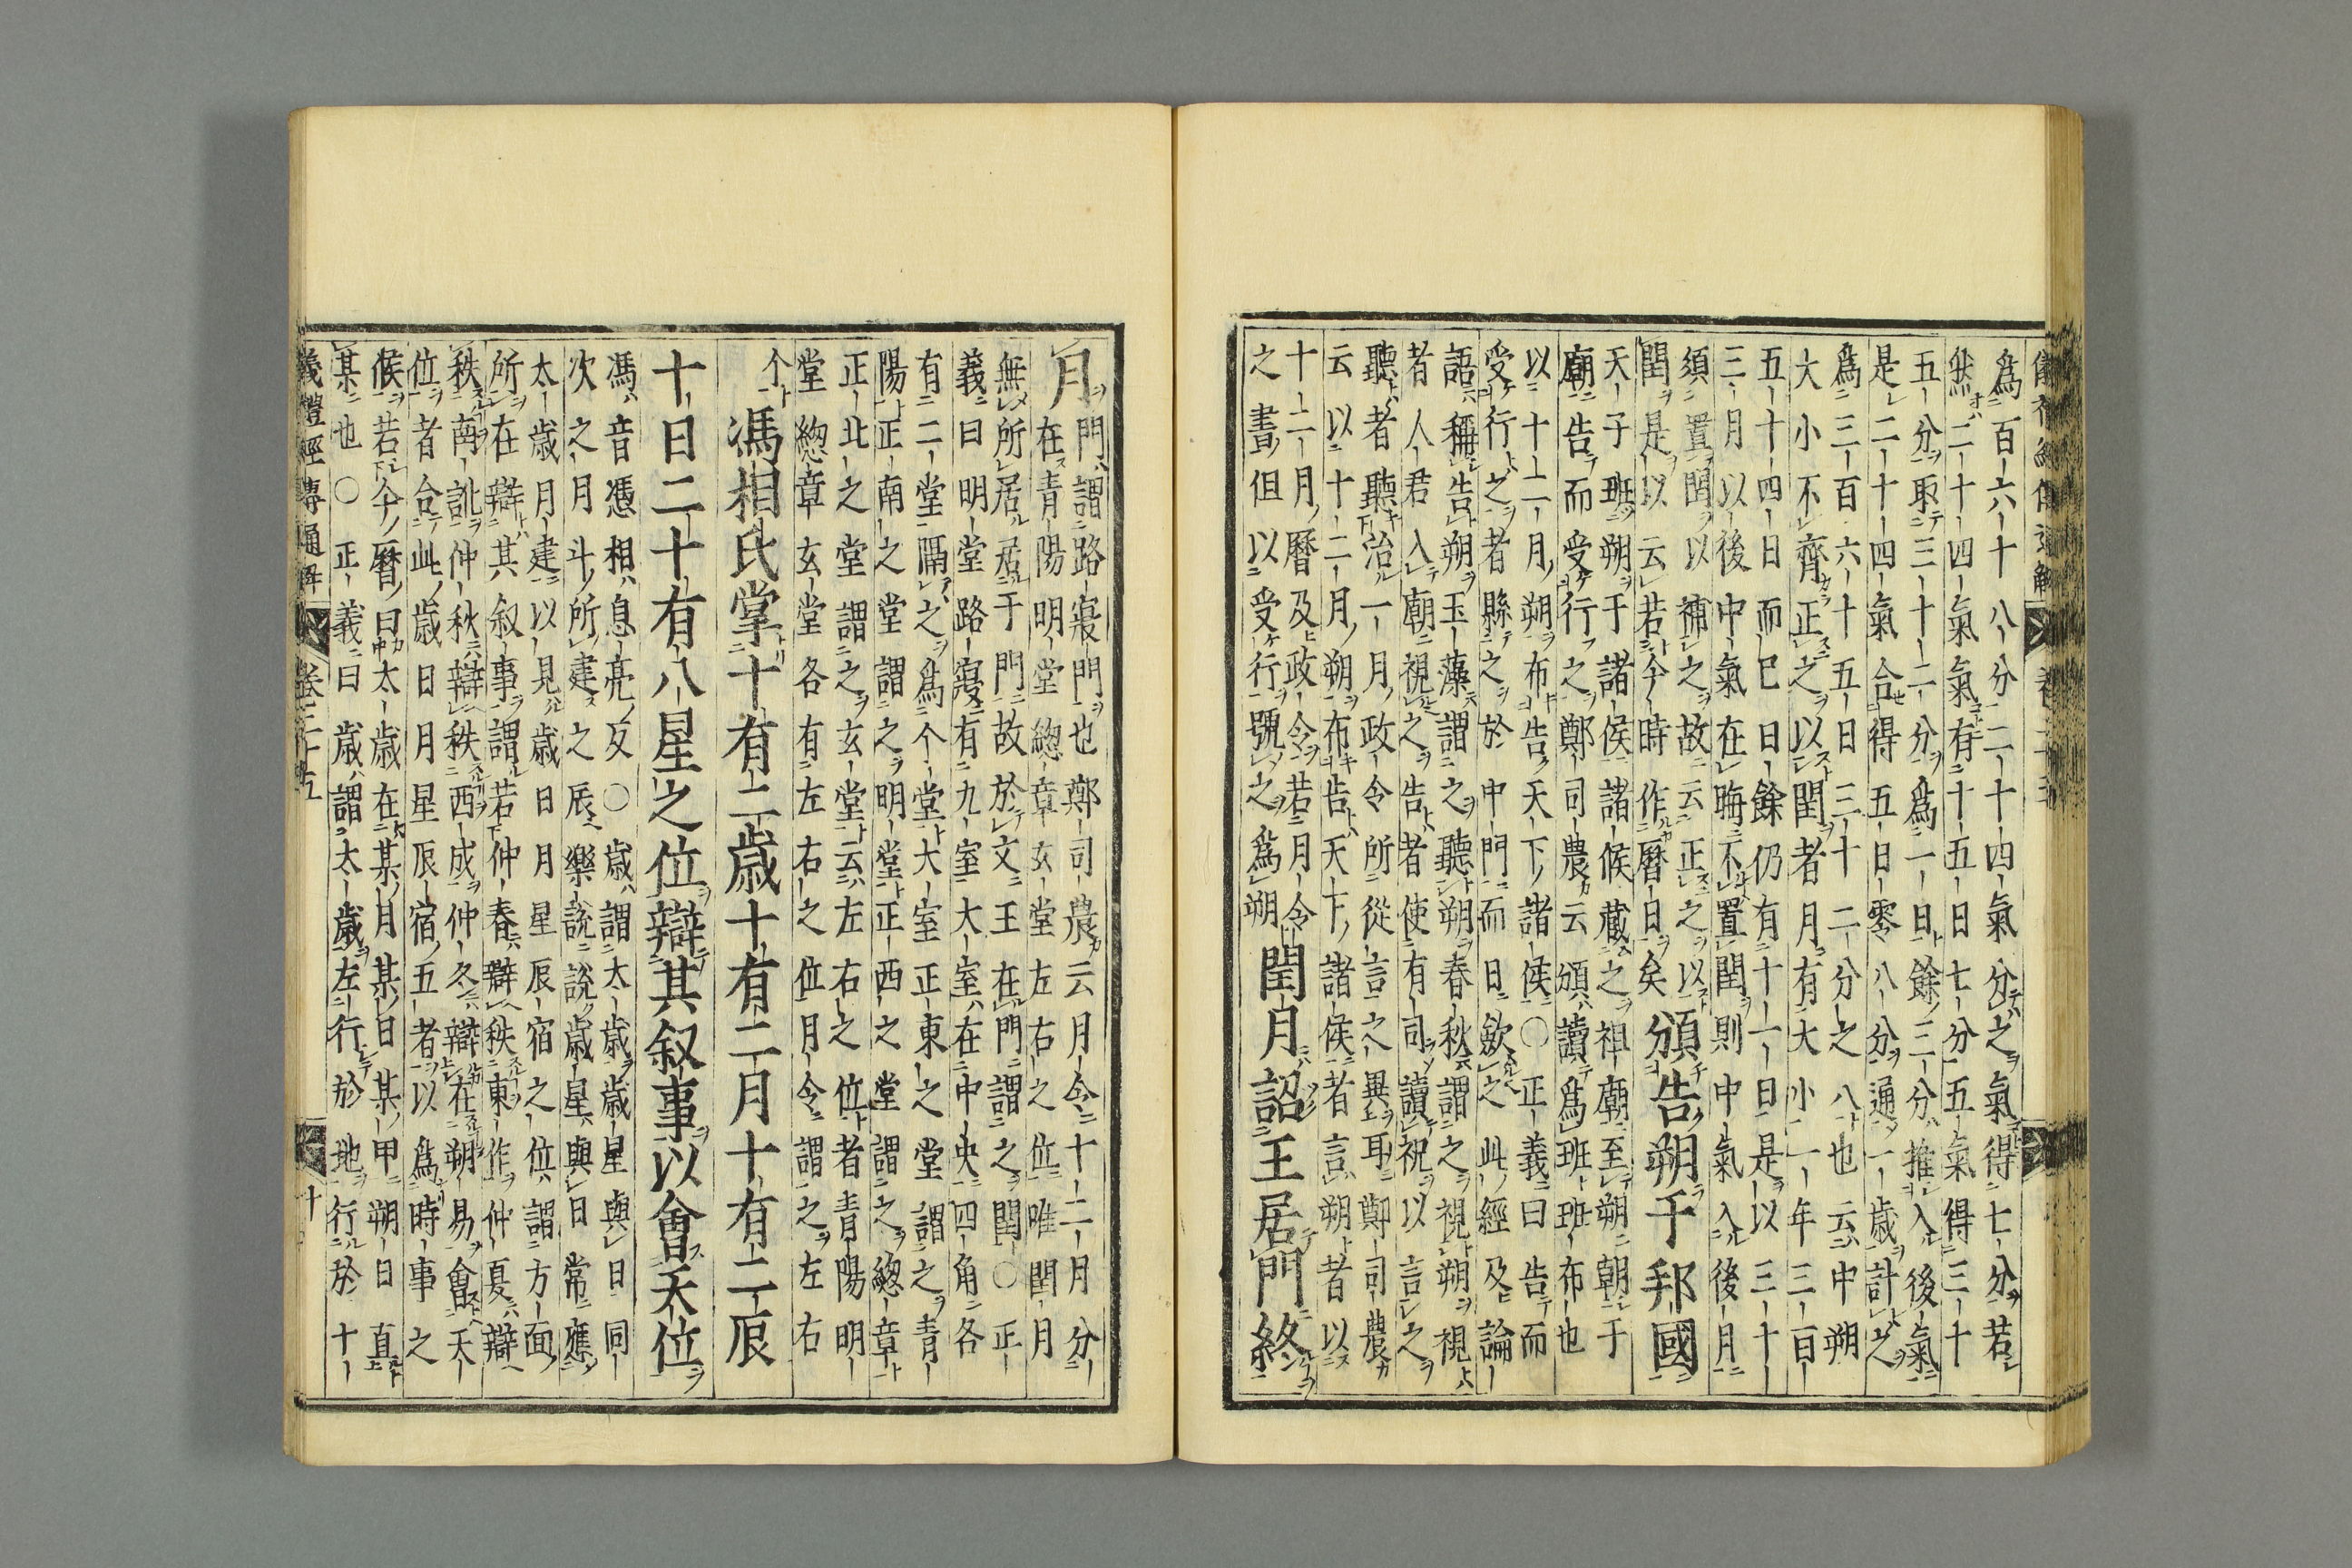 儀禮經傳通解
爲百六十八分二十四氣分之氣得七分若
然二十四氣氣有十五日七分五氣得三十
五分取三十二分爲一日餘三分推入後氣
是二十四氣合得五日零八分通一歲計之
爲三百六十五日三十二分之八也云中朔
大小不齊正之以閏者月有大小一年三百
五十四日而已日餘仍有十一日是以三十
三月以後中氣在晦不置閏則中氣入後月
須置閏以補之故云正之以
閏是以云若今時作曆日矣
頒告朔于邦國
天子班朔于諸侯諸侯藏之祖廟至朔朝于
廟告而受行之鄭司農云頒讀爲班班布也
以十二月朔布告天下諸侯○正義曰告而
受行之者縣之於中門而日斂之此經及論
語稱告朔玉藻謂之聽朔春秋謂之視朔視
者人君入廟視之告者使有司讀祝以言之
聽者聽治一月政令所從言之異耳鄭司農
云以十二月朔布告天下諸侯者言朔者以
十二月曆及政令若月令
之書但以受行號之爲朔
閏月詔王居門終
月
門謂路寢門也鄭司農云月令十二月分
在青陽明堂總章玄堂左右之位唯閏月
無所居居于門故於文王在門謂之閏○正
義曰明堂路寢有九室大室在中央四角各
有二堂隔之爲个堂大室正東之堂謂之青
陽正南之堂謂之明堂正西之堂謂之總章
正北之堂謂之玄堂云左右之位者青陽明
堂總章玄堂各有左右之位月令謂之左右
个
馮相氏掌十有二歲十有二月十有二辰
十日二十有八星之位辯其叙事以會天位
馮音憑相息亮反○歲謂太歲歲星與日同
次之月斗所建之辰樂說說歲星與日常應
太歲月建以見歲日月星辰宿之位謂方面
所在辯其叙事謂若仲春辯秩東作仲夏辯
秩南訛仲秋辯秩西成仲冬辯在朔易會天
位者合此歲日月星辰宿五者以爲時事之
候若今曆日太歲在某月某日某甲朔日直
某也○正義曰歲謂太歲左行於地行於十
儀禮經傳通解 卷二十五 十